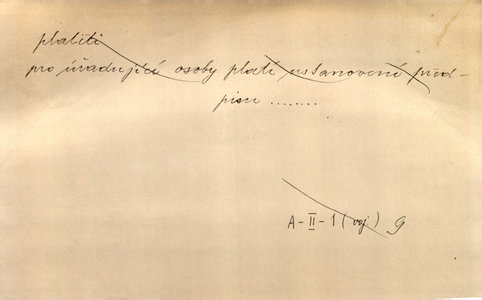 platiti
pro úřadující osoby platí ustanovení před-
pisu ........
A-II-1 (voj.) G